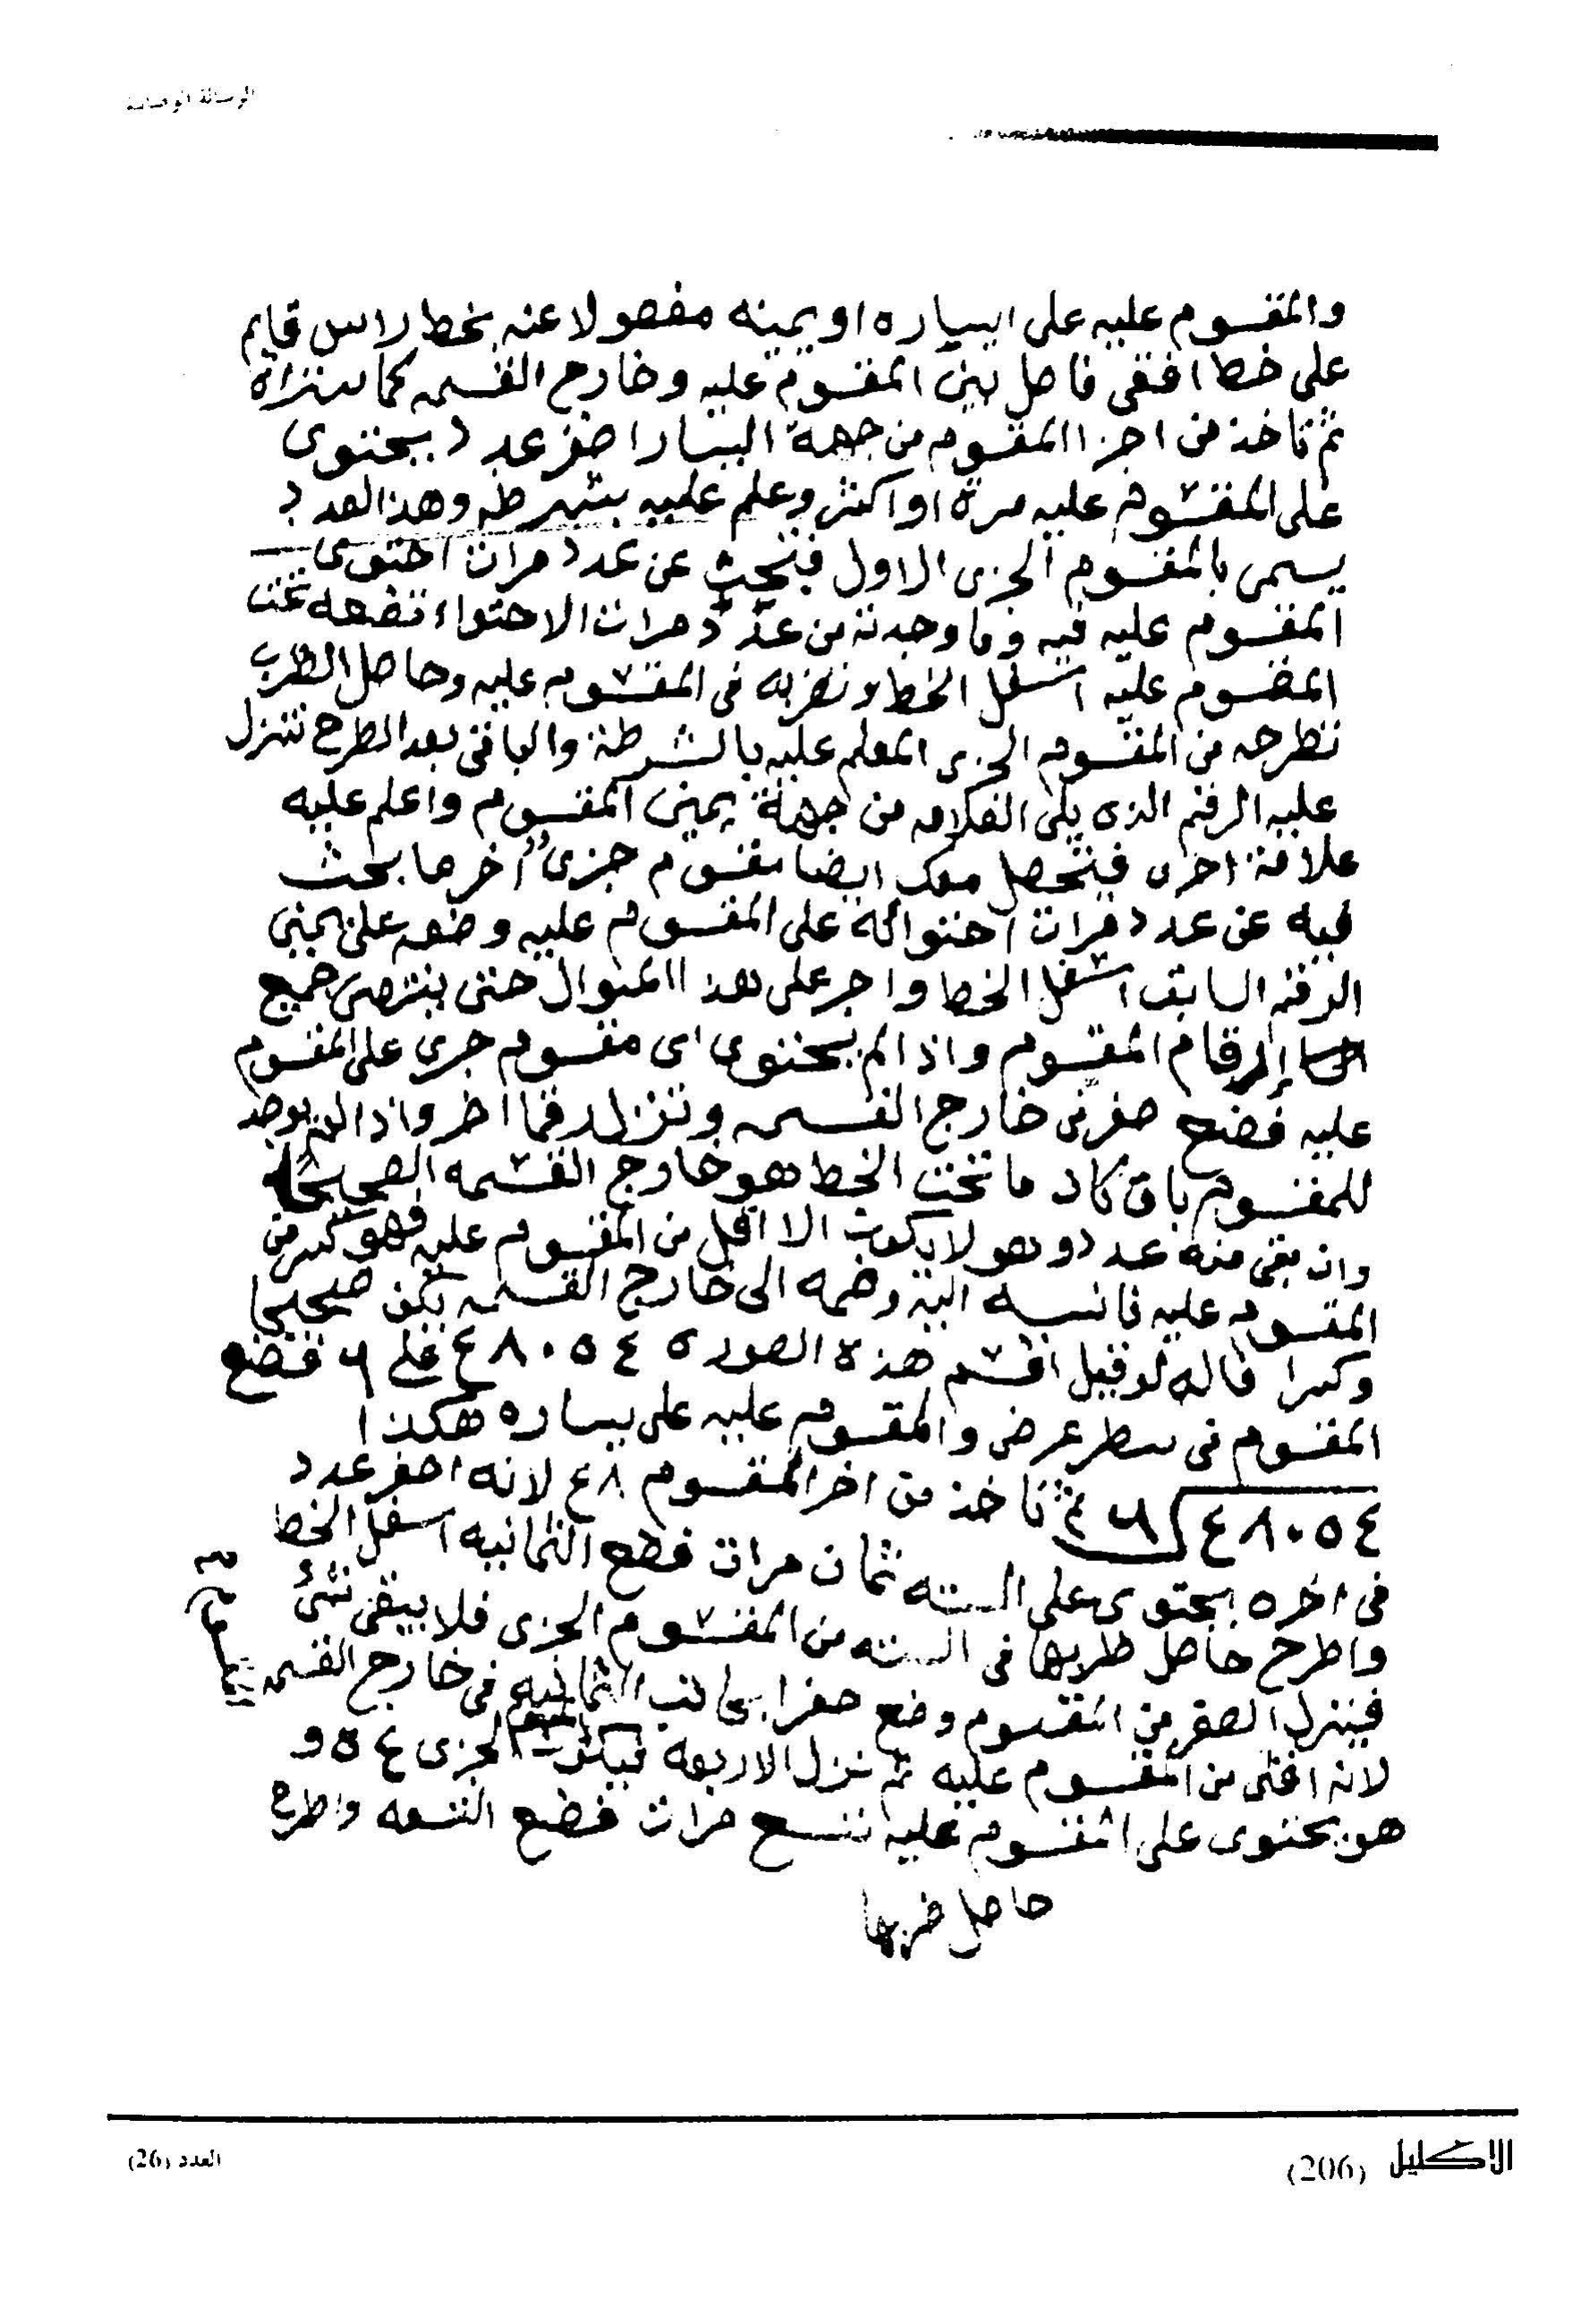 والمقسوم عليه على ايساره او يمينه مفصولا عنه بخط راس قايم
على خط افقى فاصل بين المقسوم عليه وخارج القسمه كما ستراه
ثم تاخذ من اجزا المقسوم من جهة اليسار اصغر عدد يحتوى
على المقسوم عليه مرة او اكثر وعلم عليه بشرطه وهذا العدد
يسمى بالمقسوم الجزى الاول فتبحث عن عدد مرات احتوى
المقسوم عليه فيه وما وجدته من عدد مرات الاحتواء تضعه تحت
المقسوم عليه اسفل الخط وتضربه فى المقسوم عليه وحاصل الضرب
تطرحه من المقسوم الجزى المعلم عليه بالشرطة والباقى بعد الطرح تنزل
عليه الرقم الذى يلى العلامه من جهة يمين المقسوم واعلم عليه
علامة اخرى فيتحصل معك ايضا مقسوم جزى اخر ما بحث
فيه عن عدد مرات احتوائه على المقسوم عليه وضعه على يمين
الرقم السابق اسفل الخط واجر على هذا المنوال حتى ينتهى جميع
ارقام المقسوم واذا لم يحتوى اى مقسوم جزى على المقسوم
عليه فضع صفر فى خارج القسمه وتنزل رقما اخر واذا لم يوجد
للمقسوم باق كان ما تحت الخط هو خارج القسمه الصحيحه
وان بقى منه عدد وهو لا يكون الا اقل من المقسوم عليه فهو كسر من
المقسوم عليه فانسبه اليه وضمه الى خارج القسمه يكن صحيحا
وكسرا مثاله لو قيل اقسم هذه الصوره ٤٨٠٥٤ على ٦ فضع
المقسوم فى سطر عرضى والمقسوم عليه على يساره هكذا
٤٨٠٥٤ ٦ ثم تاخذ من اخر المقسوم ٤٨ لانه اصغر عدد
فى اخره يحتوى على السته ثمان مرات فضع الثمانيه اسفل الخط
واطرح حاصل ضربها فى السته من المقسوم الجزى فلا يبقى شئ
فينزل الصفر من المقسوم وضع صفرا بجانب الثمانيه فى خارج القسمه
لانه اقل من المقسوم عليه ثم نزل الاربعه فيكون المقسوم الجزى ٥٤ و
هو يحتوى على المقسوم عليه تسع مرات فضع التسعه واطرح
حاصل ضربها
الاكليل (206)
العدد (26)